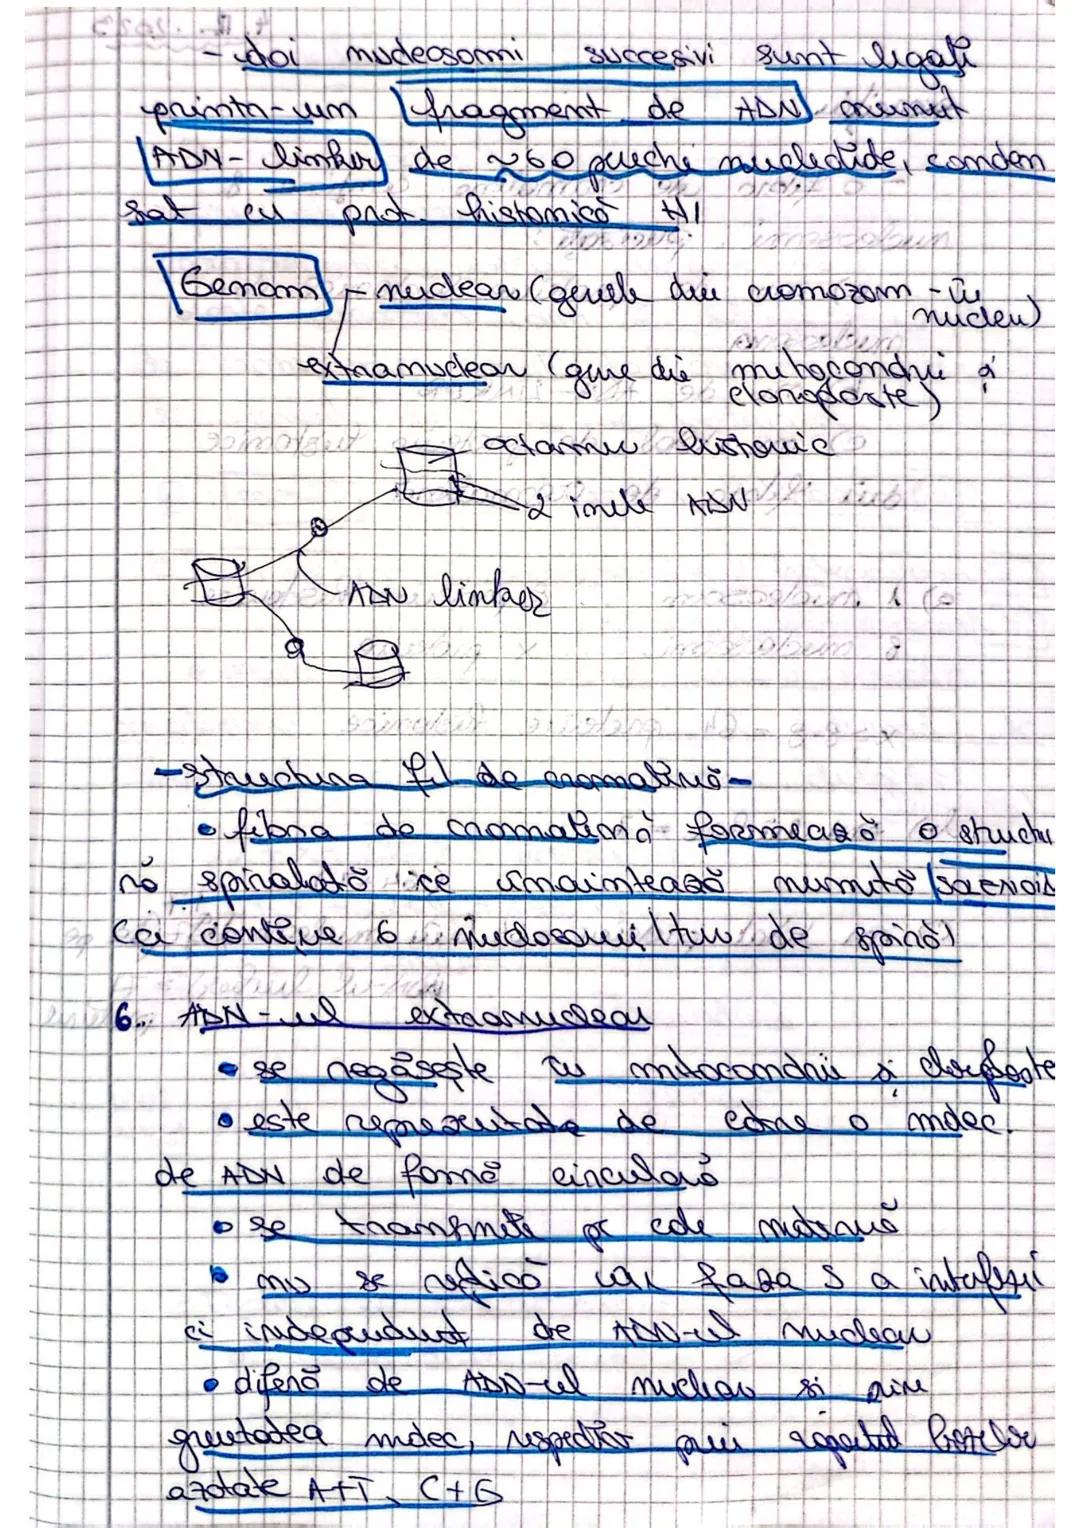 - doi nucleosomi succesivi sunt legați
printr-un fragment de ADN numit
ADN-linker de ~60 perechi nucleotide, conden
sat cu prot. histonică H1
Genom - nuclear (genele din cromozom - în
nucleu)
extranuclear (gene din mitocondrii și
cloroplaste)
octamer histonic
2 inele ADN
ADN linker
- structura fil de cromatină -
• fibra de cromatină formează o structu
ră spiralată ce înaintează numită solenoid
ce conține 6 nucleosomi/tur de spiră!
6. ADN-ul extranuclear
• se regăsește în mitocondrii și cloroplaste
• este reprezentată de către o molec.
de ADN de formă circulară
• se transmite pe cale maternă
• nu se replică în faza S a interfazei
ci independent de ADN-ul nuclear
• diferă de ADN-ul nuclear și prin
greutatea molec, respectiv prin raportul bazelor
azotate A+T, C+G